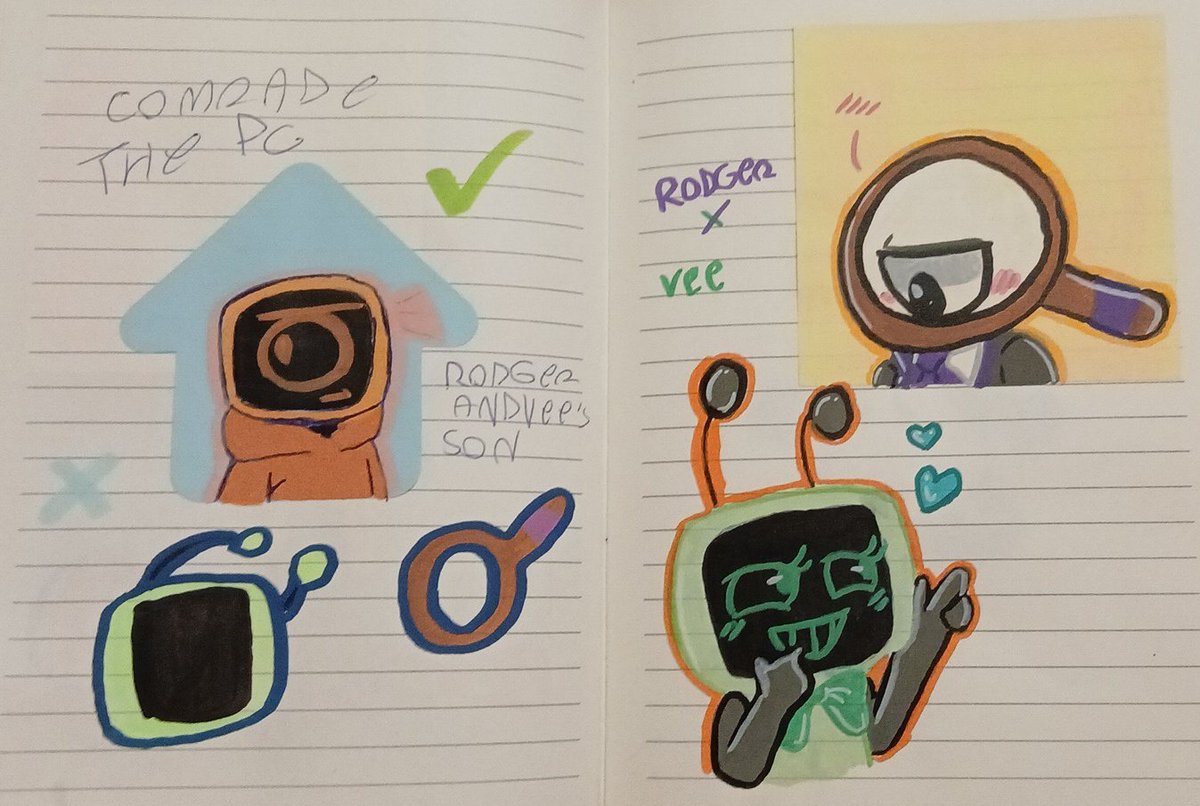 COMRADe
THe PC
RODGeR
ANDVee's
SON
RODGeR
X
vee